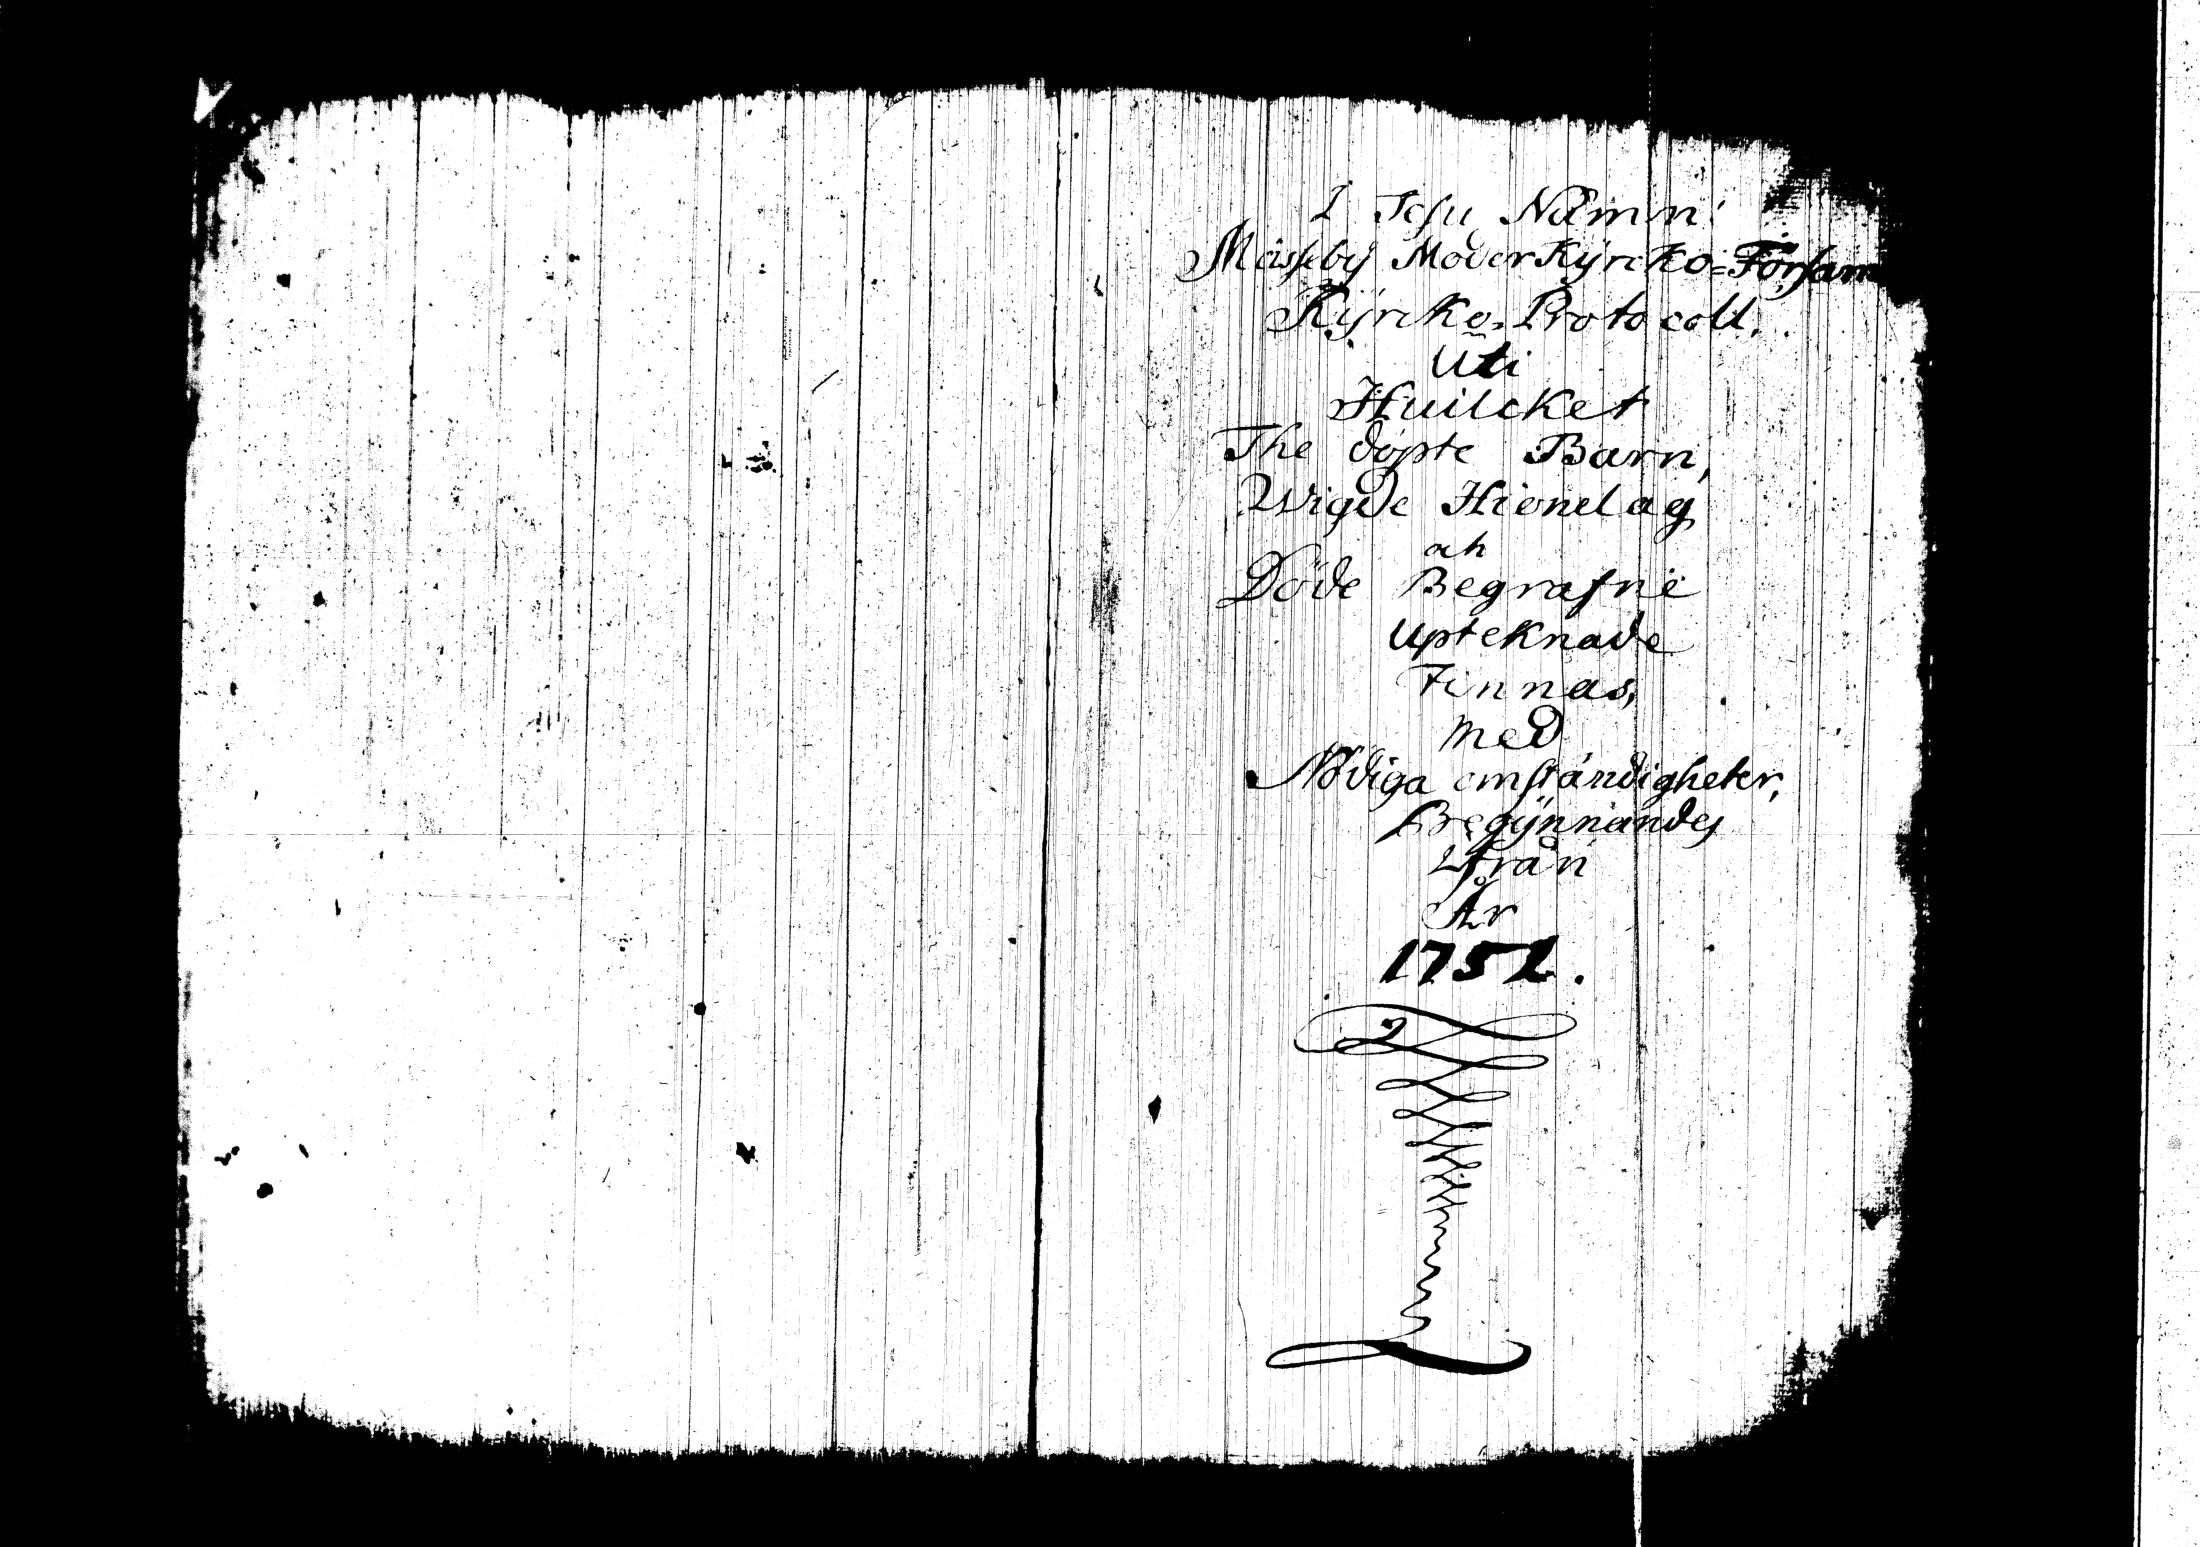 I Jesu Namn!
Mässeby ModerKyrcko-Försam
Kyrcko-Protocoll.
Uti
HuilcKet
The döpte Barn,
Wigde Hionelag
och
Döde Begrafne
UpteKnade
Finnas,
med
Nödiga omständigheter,
Begynnandes
Ifrån
År
1752.